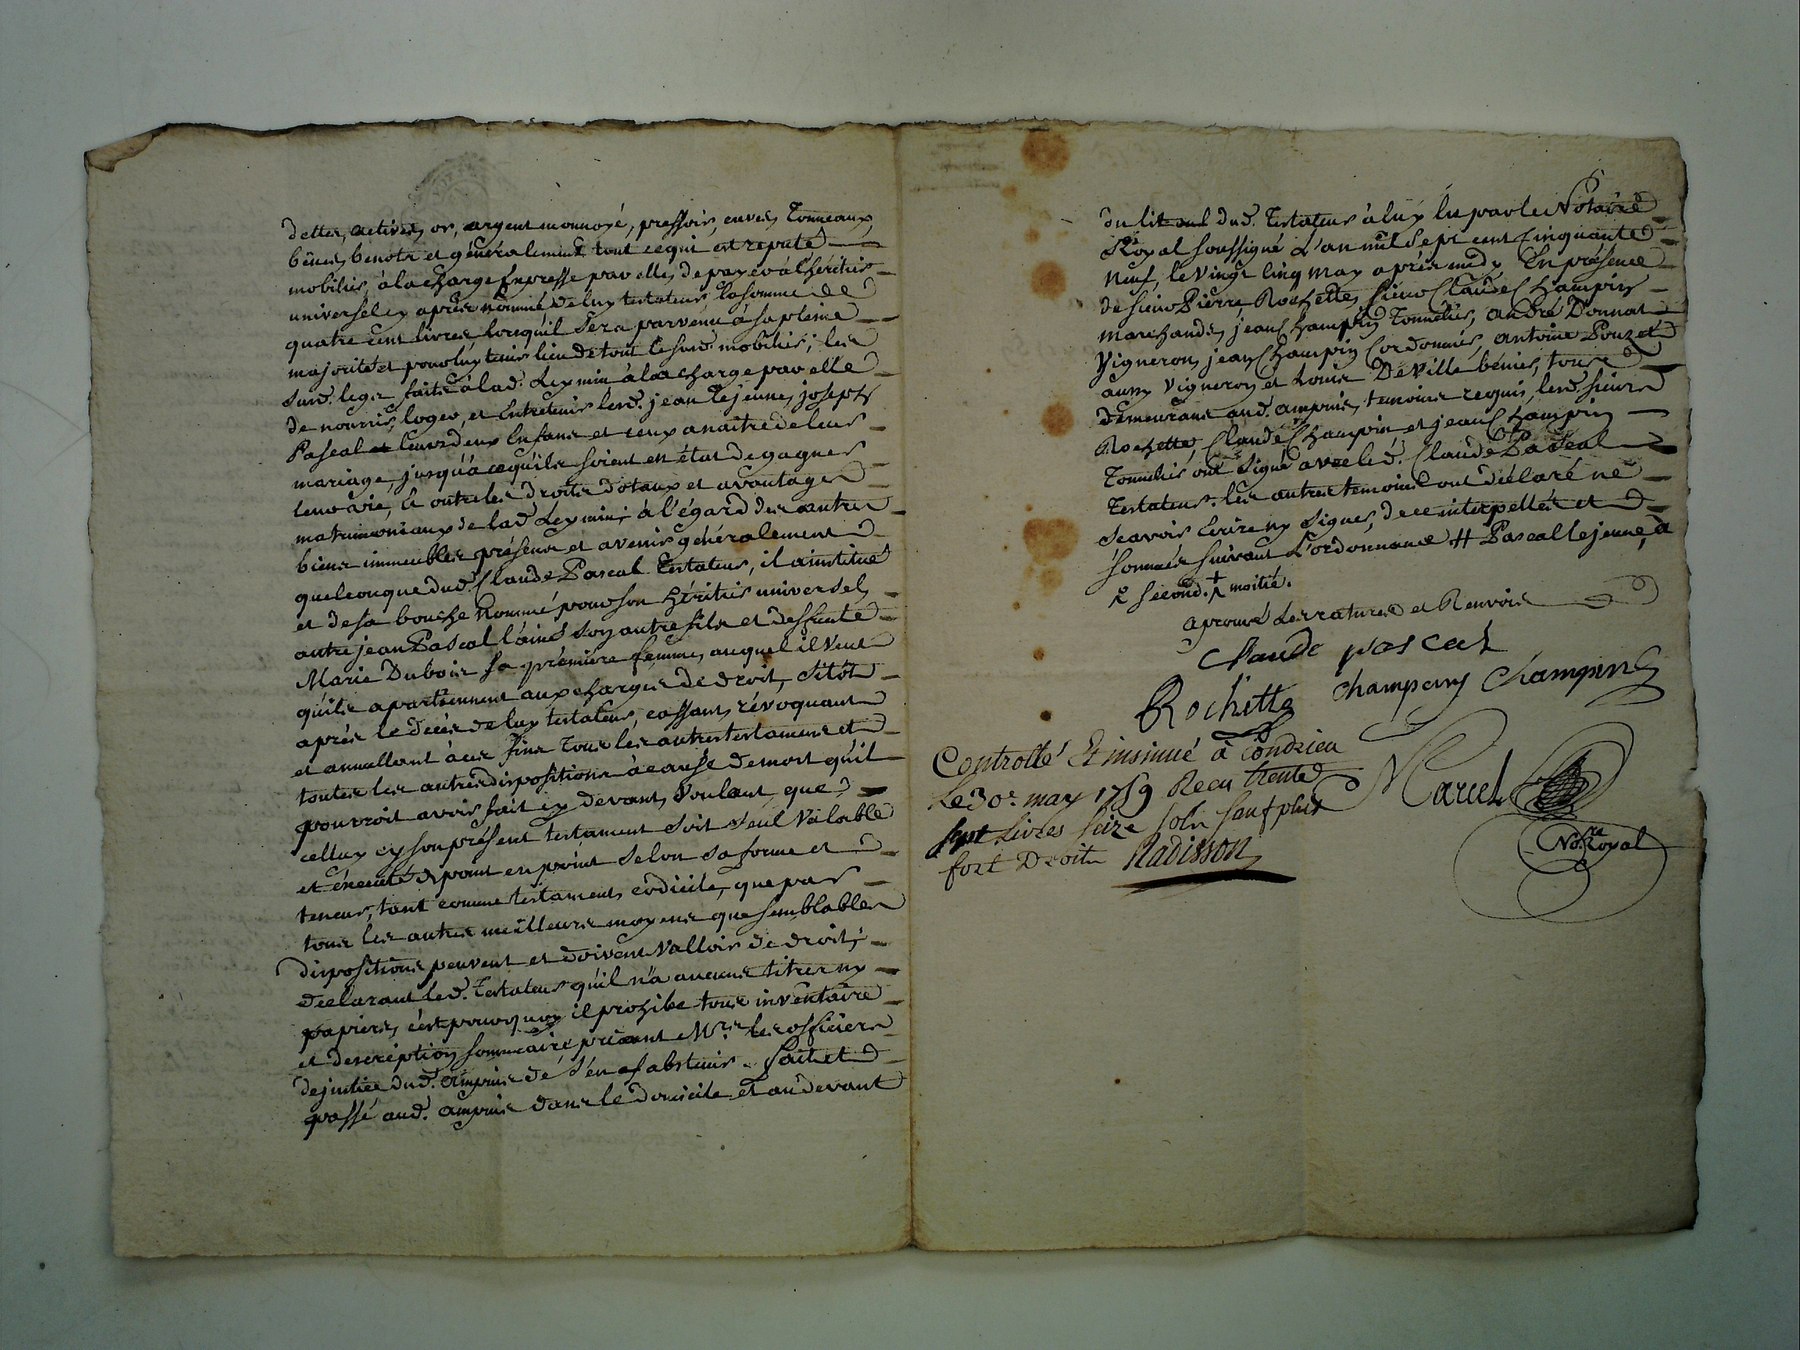 dettes, actives, or, argent monnoyé, pressoir, cuves, Tonneaux,
bênes, benots et généralement tout ce qui est reputé
mobilier, à la charge Expresse par elle, de payer à l'héritier
universel cy après nommé de luy testateur, la somme de
quatre cent livres lorsquil sera parvenu à sa pleine
majorité et pour luy tenir lieu de tout le surd. mobilier; les
susd. legs faits à lad. Leymin à la charge par elle
de nourrir, loger, et Entretenir lesd. jean Lejeune, joseph
Pascal leurs deux Enfans et ceux a naître de leur
mariage, jusqu'à ce qu'ils soient en état de gagner
leur vie, Et outre les droits dotaux et avantages
matrimoniaux de lad. Leymin; à l'égard des autres
biens immeubles présens et avenir généralement
quelconque dud. Claude Pascal Testateur, il a institué
et de sa bouche Nommé pour son héritier universel,
autre jean Pascal l'ainé son autre fils et deffunte
Marie Dubois sa première femme, auquel il veut
qu'ils apartiennent aux charges de droit, sitôt
après le décès de luy testateur, cassant, révoquant
et annullant à ces fins tous les autres testamens et
toutes les autres dispositions à cause de mort qu'il
pourroit avoir fait cy devant, voulant que
celluy cy son présent testament soit seul valable
et éxecuté de point en point selon sa forme et
teneur, tant comme testament, codicile, que par
tous les autres meilleurs moyens que semblables
dispositions peuvent et doivent valloir de droit;
declarant led. Testateur qu'il n'a aucuns titres ny
papiers, c'est pourquoy il prohibe tous inventaire
et description sommaire priant Mrs. les officiers
de justice dud. Ampuis de s'en abstenir. fait et
passé aud. ampuis dans le domicile et au devant
du lit dud. Testateur à luy lu par le Notaire
Royal soussigné L'an mil sept cent Cinquante
Neuf, le vingt cinq may après midy En présence
de sieur Pierre Rochette, sieur Claude Champin
marchands, jean Champin Tonnelier, andré Donnat
Vigneron, jean Champin Cordonnier, antoine Pouzet
aussy vigneron et Louis Deville bênier, tous
demeurans aud. ampuis, temoins requis, lesd. sieurs
Rochette, Claude Champin et jean Champin
Tonnelier ont signé avec led. Claude Pascal
Testateur. les autres temoins ont déclaré ne
scavoir Ecrire ny signer, de ce interpellés et
sommés suivant L'ordonnance # Pascal le jeune, à
second. + moitié.
aprouvé Les ratures et Renvois
Claude pascal
Rochette Champein Champin
Controllé Et insinué à Condrieu
le 30e. may 1759 Recu trente
sept Livres seize sols sauf plus
fort Droits Radisson
Marcel
Nore. Royal